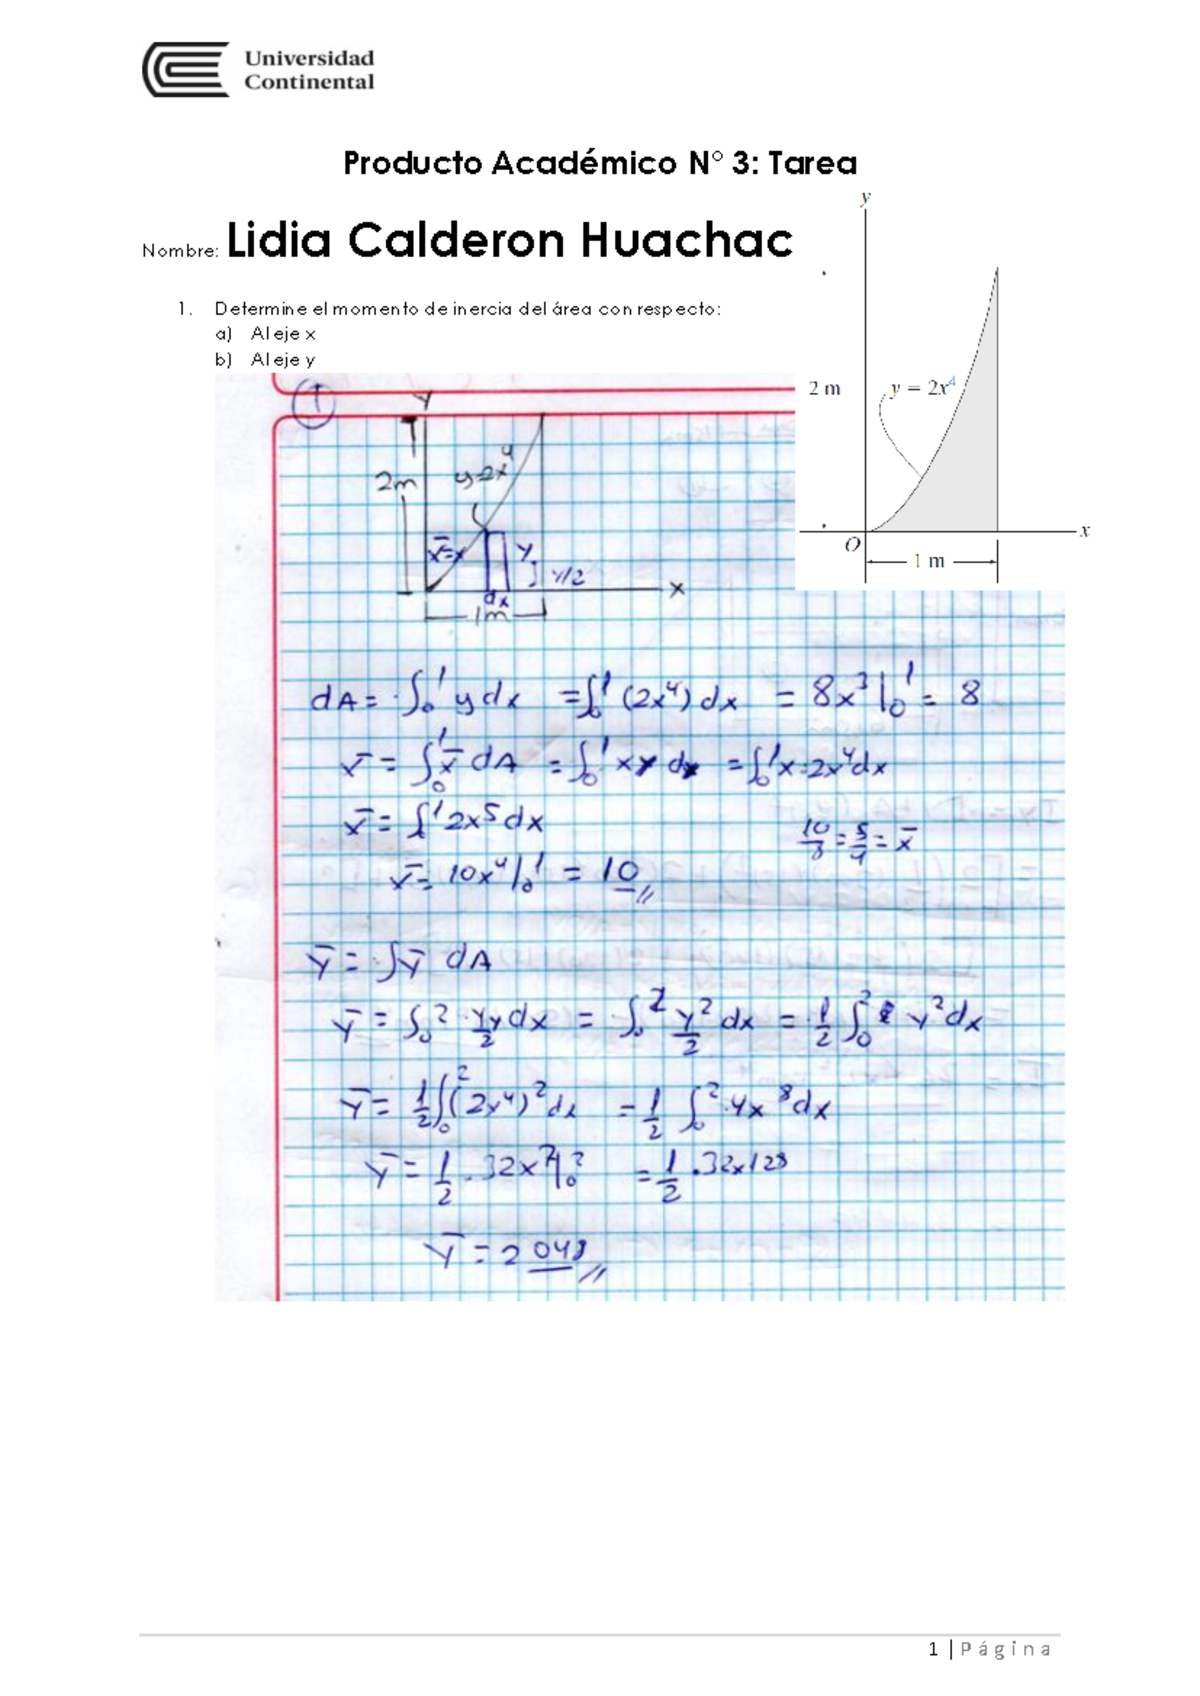 Universidad
Continental
Producto Académico N° 3: Tarea
Nombre: Lidia Calderon Huachac
1. Determine el momento de inercia del área con respecto:
a) Al eje x
b) Al eje y
y
2 m
y = 2x⁴
O
x
1 m
1
Y
2m
y=2x⁴
x̄=x
y
y/2
dx
x
1m
dA = ∫₀¹ y dx = ∫₀¹ (2x⁴) dx = 8x³|₀¹ = 8
x̄ = ∫₀¹ x̄ dA = ∫₀¹ xy dx = ∫₀¹ x·2x⁴dx
x̄ = ∫¹ 2x⁵dx
10/8 = 5/4 = x̄
x̄ = 10x⁴|₀¹ = 10
ȳ = ∫ȳ dA
ȳ = ∫₀² y/2 y dx = ∫₀² y²/2 dx = 1/2 ∫₀² y²dx
ȳ = 1/2 ∫₀² (2x⁴)² dx = 1/2 ∫₀² 4x⁸dx
ȳ = 1/2 · 32x⁷|₀² = 1/2 · 32x128
ȳ = 2048
1 | Página